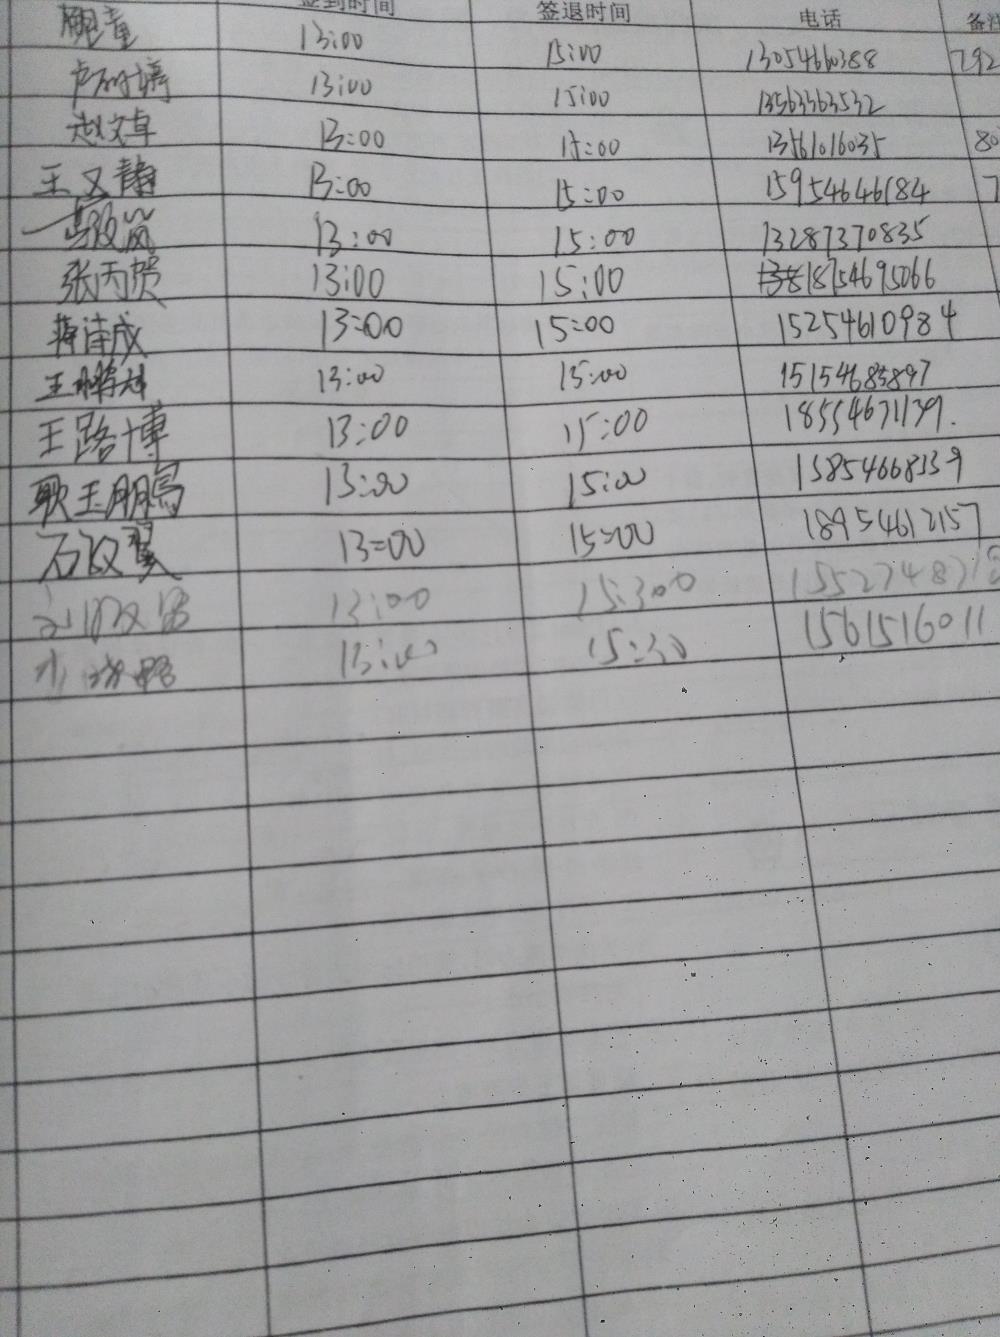 签到时间 签退时间 电话 备注
13:00 15:00 13054660388 792
13:00 15:00 13563363532
赵文卓 13:00 15:00 13561016035 80
王文静 13:00 15:00 15954646184 7
13:00 15:00 13287370835
张丙贺 13:00 15:00 18754695066
蒋诗成 13:00 15:00 15254610984
王鹏 13:00 15:00 15154683897
王路博 13:00 15:00 18554671139.
王朋鸟 13:00 15:00 13854668339
石政翼 13:00 15:00 18954612157
13:00 15:300
13:00 15:30 1561516011